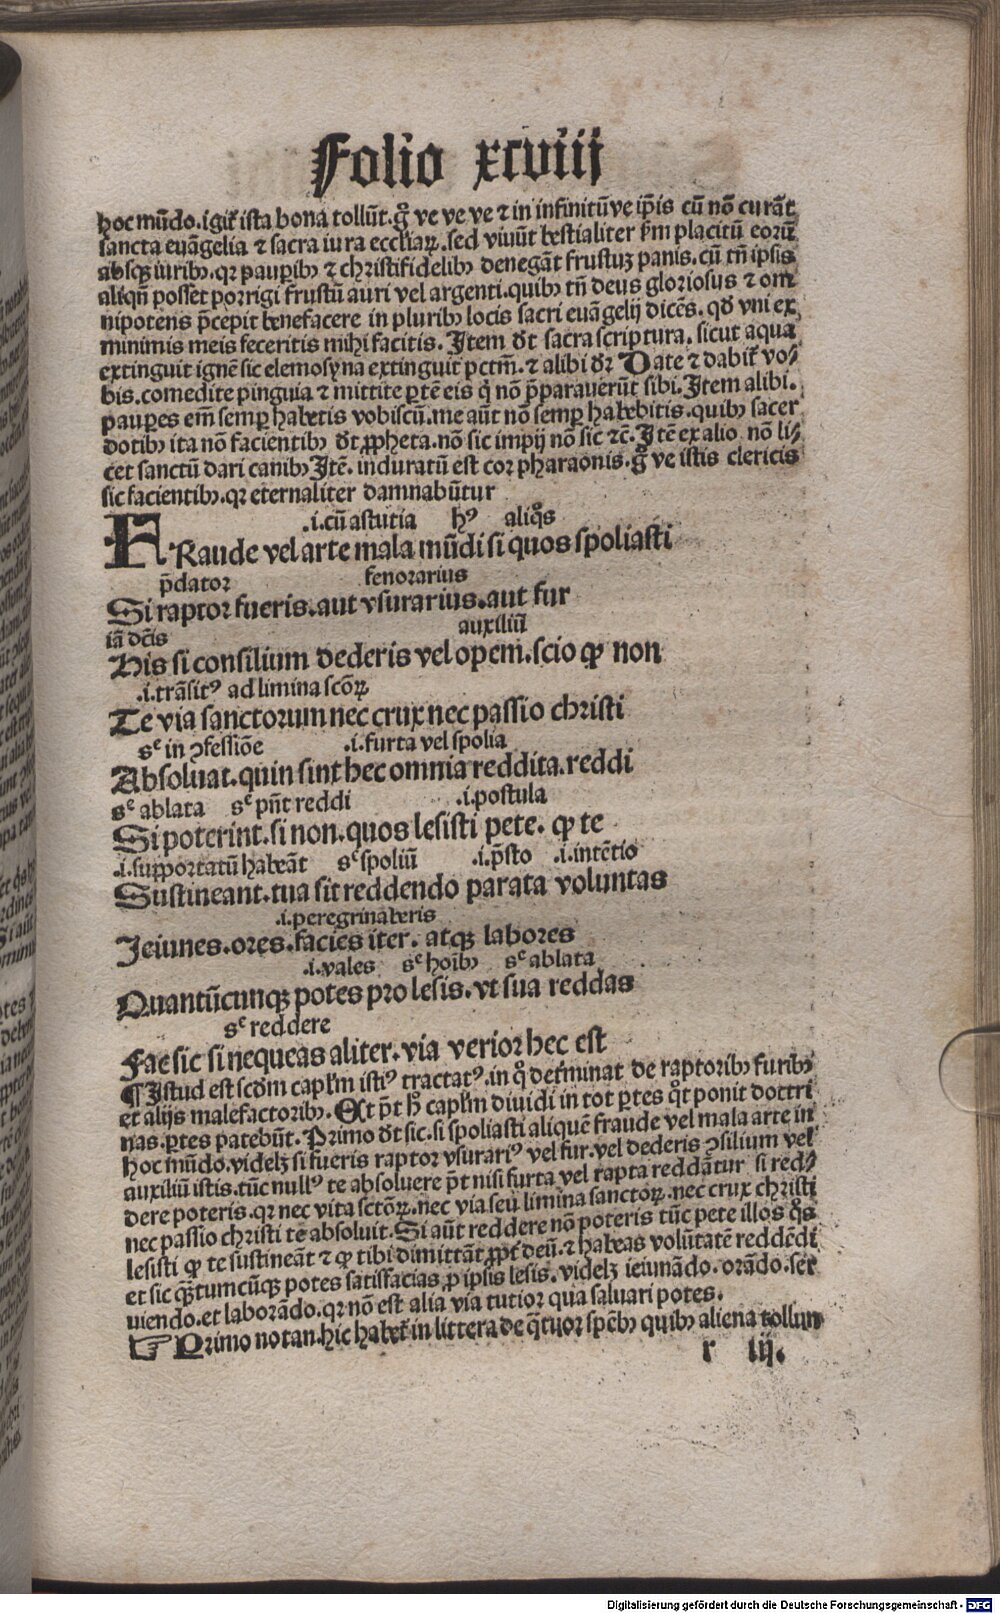 Folio xcviij
hoc mūdo. igiť ista bona tollūt. gͦ ve ve ve ⁊ in infinitū ve ip̄is cū nō curāt
sancta euāgelia ⁊ sacra iura eccl̄iaꝝ. sed viuūt bestialiter ẜm placitū eorū
absqꝫ iuribꝰ. qꝛ pauꝑibꝰ ⁊ christifidelibꝰ denegāt frustuꝫ panis. cū tn̄ ipsis
aliqn̄ posset porrigi frustū auri vel argenti. quibꝰ tn̄ deus gloriosus ⁊ om
nipotens p̄cepit benefacere in pluribꝰ locis sacri euāgelij dicēs. qd̄ vni ex
minimis meis feceritis mihi facitis. Item dt̄ sacra scriptura. sicut aqua
extinguit ignē sic elemosyna extinguit pctm̄. ⁊ alibi dr̄ Date ⁊ dabiť vo⸗
bis. comedite pinguia ⁊ mittite ꝑtē eis q̇ nō p̄parauerūt sibi. Item alibi.
pauꝑes em̄ semꝑ habetis vobiscū. me aūt nō semꝑ habebitis. quibꝰ sacer
dotibꝰ ita nō facientibꝰ dt̄ ꝓpheta. nō sic impij nō sic ⁊c̄. Itē ex alio nō li⸗
cet sanctū dari canibꝰ Itē. induratū est cor pharaonis. gͦ ve istis clericis
sic facientibꝰ. qꝛ eternaliter damnabūtur
.i. cū astutia hꝰ aliq̊s
FRaude vel arte mala mūdi si quos spoliasti
p̄dator fenorarius
Si raptor fueris. aut vsurarius. aut fur
iā dc̄is auxiliū
His si consilium dederis vel opem. scio ꝙ non
.i. trāsitꝰ ad limina sc̄oꝝ
Te via sanctorum nec crux nec passio christi
sᶜ in ꝯfessiōe .i. furta vel spolia
Absoluat. quin sint hec omnia reddita. reddi
sᶜ ablata sᶜ pn̄t reddi .i. postula
Si poterint. si non. quos lesisti pete. ꝙ te
.i. supportatū habeāt sᶜ spoliū .i. p̄sto .i. intētio
Sustineant. tua sit reddendo parata voluntas
.i. peregrinaberis
Jeiunes. ores. facies iter. atqꝫ labores
.i. vales sᶜ hoībꝰ sᶜ ablata
Quantūcunqꝫ potes pro lesis. vt sua reddas
sᶜ reddere
Fac sic si nequeas aliter. via verior hec est
¶ Istud est scd̄m capl̄m istiꝰ tractatꝰ. in q̊ det̄minat de raptoribꝰ furibꝰ
et alijs malefactoribꝰ. Et pōt h̄ capl̄m diuidi in tot ꝑtes q̊t ponit doctri
nas. ꝑtes patebūt. Primo dt̄ sic. si spoliasti aliquē fraude vel mala arte in
hoc mūdo. videlꝫ si fueris raptor vsurariꝰ vel fur. vel dederis ꝯsilium vel
auxiliū istis. tūc nullꝰ te absoluere pōt nisi furta vel rapta reddātur si red⸗
dere poteris. qꝛ nec vita sctōꝝ. nec via seu limina sanctoꝝ. nec crux christi
nec passio christi te absoluit. Si aūt reddere nō poteris tūc pete illos q̊s
lesisti ꝙ te sustineāt ⁊ ꝙ tibi dimittāt ꝓpť deū. ⁊ habeas volūtatē reddēdi
et sic qᷓtumcūqꝫ potes satisfacias ꝓ ipsis lesis. videlꝫ ieiunādo. orādo. ser
uiendo. et laborādo. qꝛ nō est alia via tutior qua saluari potes.
☞ Primo notan. hic habeť in littera de qᷓtuor spēbꝰ quibꝰ aliena tollun
r iij.
Digitalisierung gefördert durch die Deutsche Forschungsgemeinschaft - DFG